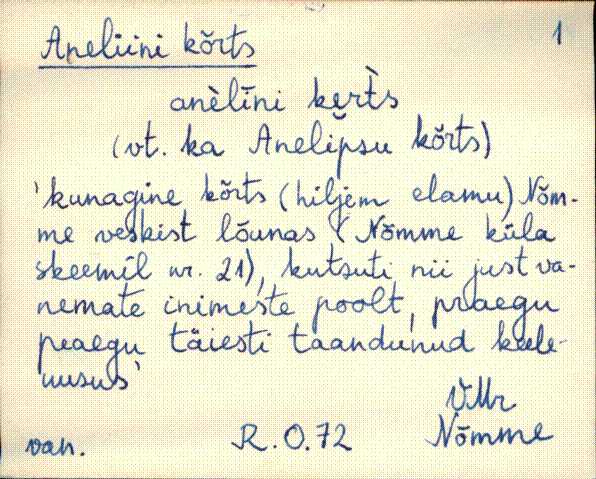 Aneliini kõrts 1
anèlīni kērt̀s
(vt. ka Anelipsu kõrts)
'kunagine kõrts (hiljem elamu) Nõm-
me veskist lõunas (Nõmme küla
skeemil nr. 21), kutsuti nii just va-
nemate inimeste poolt, praegu
peaegu täiesti taandunud kele-
uusus'
VMr
van. R.O.72 Nõmme